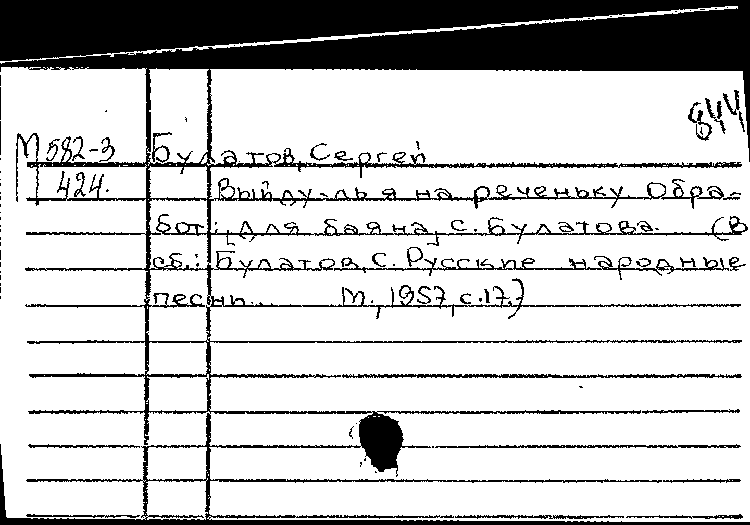 844
М582-3 Булатов, Сергей
424. Выйду-ль я на реченьку Обра-
бот.: [для баяна] С. Булатова. (В
сб.: Булатов, С. Русские народные
песни... М., 1957, с.17.)